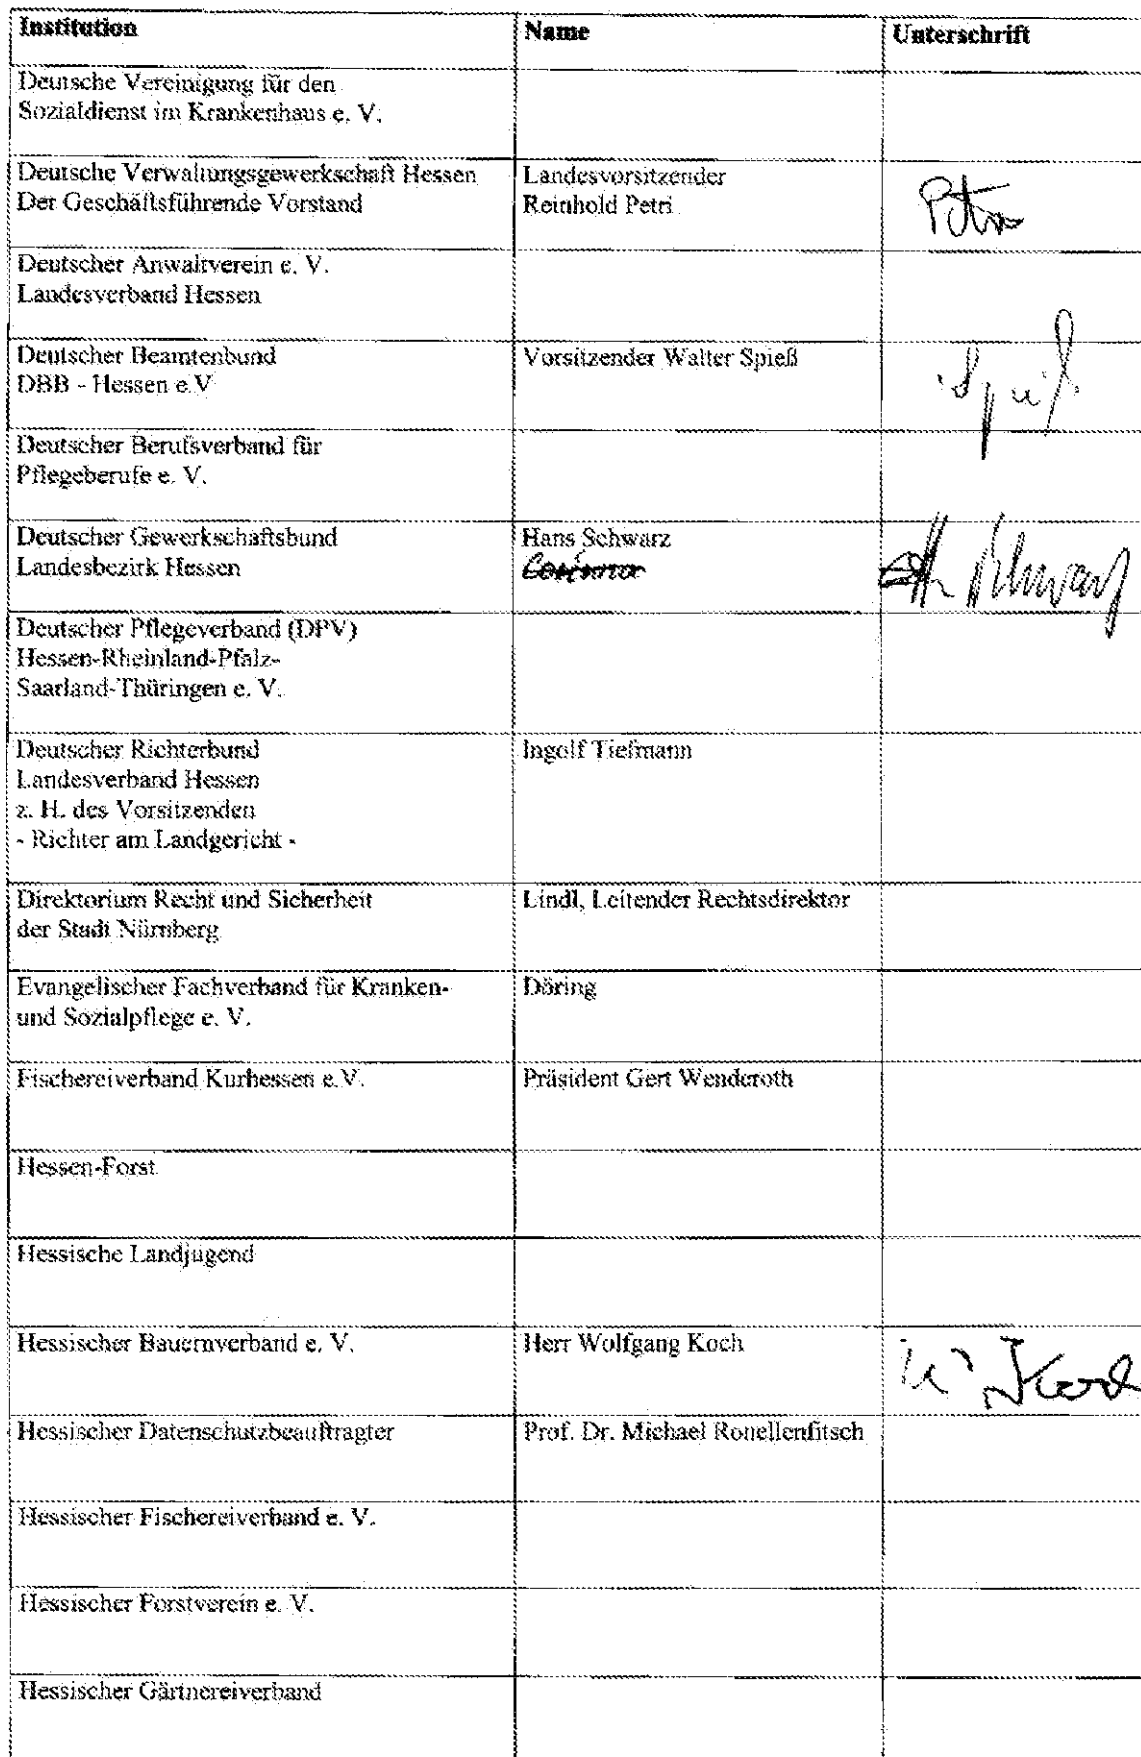 Institution Name Unterschrift
Deutsche Vereinigung für den
Sozialdienst im Krankenhaus e. V.
Deutsche Verwaltungsgewerkschaft Hessen Landesvorsitzender
Der Geschäftsführende Vorstand Reinhold Petri Petri
Deutscher Anwaltverein e. V.
Landesverband Hessen
Deutscher Beamtenbund Vorsitzender Walter Spieß
DBB - Hessen e.V Spieß
Deutscher Berufsverband für
Pflegeberufe e. V.
Deutscher Gewerkschaftsbund Hans Schwarz
Landesbezirk Hessen Schwarz
Deutscher Pflegeverband (DPV)
Hessen-Rheinland-Pfalz-
Saarland-Thüringen e. V.
Deutscher Richterbund Ingolf Tiefmann
Landesverband Hessen
z. H. des Vorsitzenden
- Richter am Landgericht -
Direktorium Recht und Sicherheit Lindl, Leitender Rechtsdirektor
der Stadt Nürnberg
Evangelischer Fachverband für Kranken- Döring
und Sozialpflege e. V.
Fischereiverband Kurhessen e.V. Präsident Gert Wenderoth
Hessen-Forst
Hessische Landjugend
Hessischer Bauernverband e. V. Herr Wolfgang Koch W. Koch
Hessischer Datenschutzbeauftragter Prof. Dr. Michael Ronellenfitsch
Hessischer Fischereiverband e. V.
Hessischer Forstverein e. V.
Hessischer Gärtnereiverband